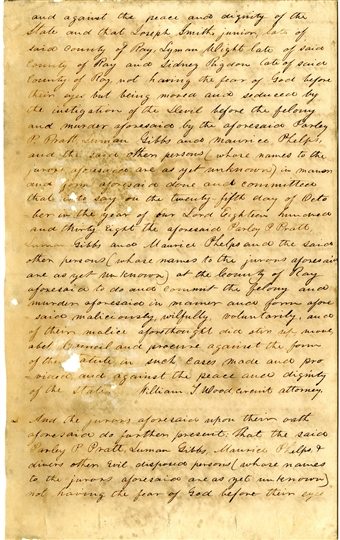 and against the peace and dignity of the
State and that Joseph Smith, junior, late of
said County of Ray, Lyman Wight late of said
County of Ray and Sidney Rigdon late of said
County of Ray not having the fear of God before
their eyes but being moved and seduced by
the instigation of the Devil before the felony
and murder aforesaid by the aforesaid Parley
P. Pratt, Luman Gibbs and Maurice Phelps,
and the said other persons (whose names to the
jurors aforesaid are as yet unknown) in manner
and form aforesaid done and committed
that day on the twenty fifth day of Octo
ber in the year of our Lord Eighteen hundred
and thirty Eight the aforesaid Parley P. Pratt,
Luman Gibbs and Maurice Phelps and the said
other persons (whose names to the jurors aforesaid
are as yet unknown) at the County of Ray
aforesaid to do and commit the felony and
murder aforesaid in manner and form afore
said maliciously, wilfully, voluntarily, and
of their malice aforethought did stir up, move,
abet Council and procure against the form
of the Statute in such Cases made and pro
vided and against the peace and dignity
of the State. William T. Wood circuit attorney.
And the jurors aforesaid upon their oath
aforesaid do further present, That the said
Parley P. Pratt, Luman Gibbs, Maurice Phelps &
divers other Evil disposed persons (whose names
to the jurors aforesaid are as yet unknown)
not having the fear of God before their eyes